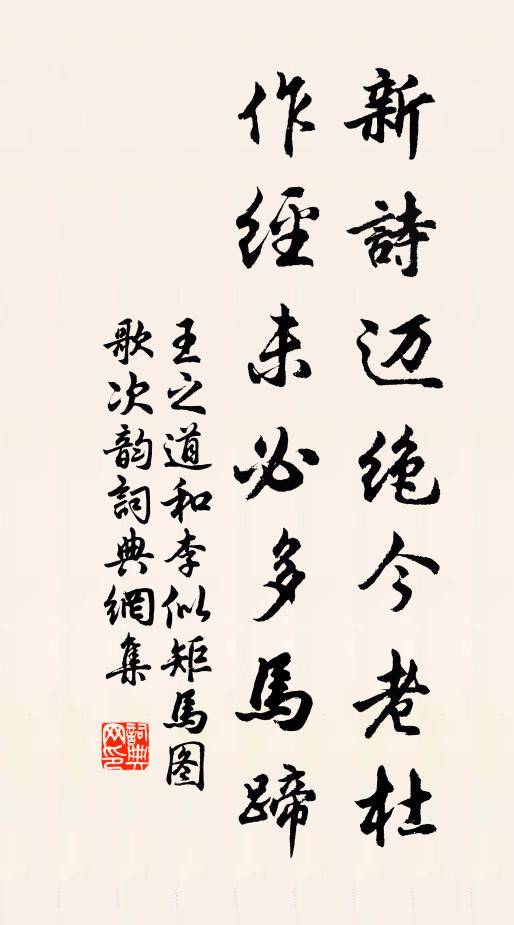 新詩迈绝今老杜
作經未必多馬蹄
王之道和李似矩馬图
歌次韵詞典網集
詞典网印